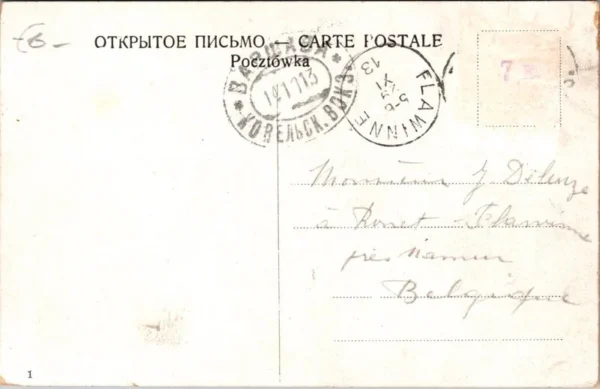 ОТКРЫТОЕ ПИСЬМО — CARTE POSTALE
Pocztówka
ВАРШАВА
КОВЕЛЬСК. ВОКЗ.
FLAWINNE
XI
13
7
Monsieur J Deleuze
à Ronet - Flawinne
près Namur
Belgique
1